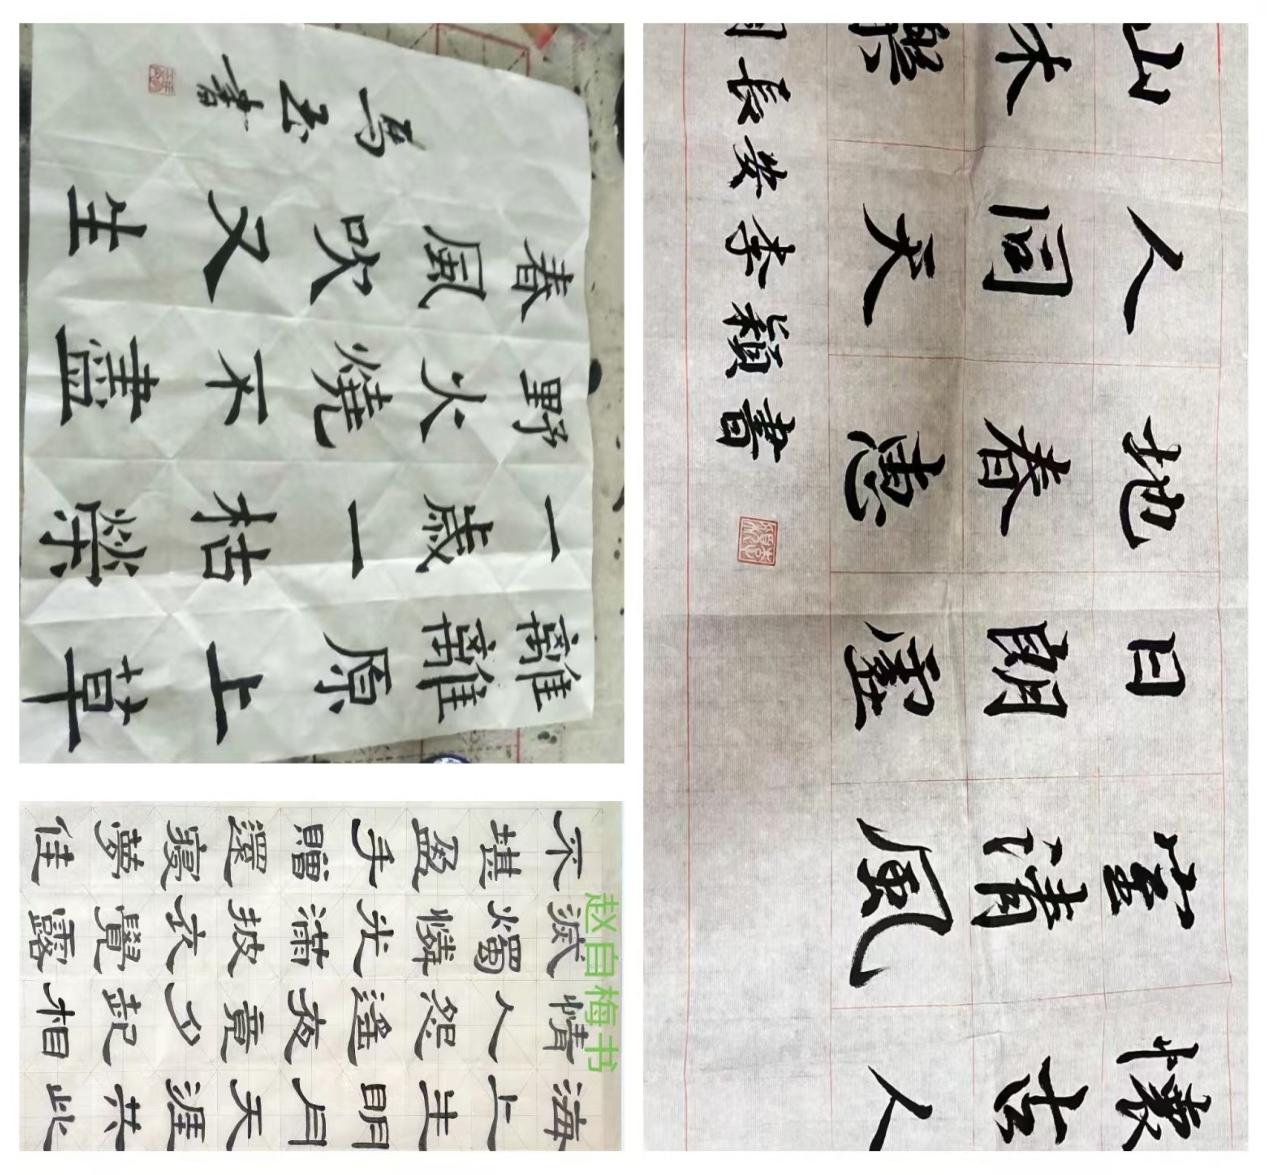 離離原上草
一歲一枯榮
野火燒不盡
春風吹又生
馬玉書
海上生明月天涯共此
情人怨遙夜竟夕起相
滅燭憐光滿披衣覺露
不堪盈手贈還寢夢佳
赵自梅书
懷古人
室清風
日朗
地春惠
人同天
山木樂
長安李穎書